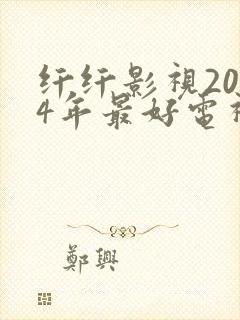 纤纤影視20
4年最好電
鄭興